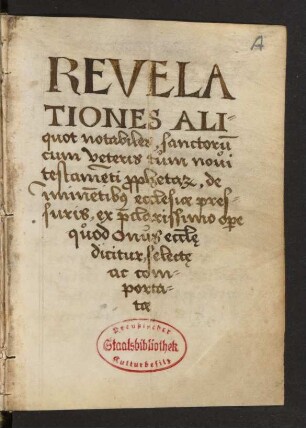 A
REVELA
TIONES ALI-
quot notabiles, sanctorū
cum veteris tum noui
testamēti ꝓphetaꝝ, de
iminētibꝰ ecclesiæ pres-
suris, ex p̄clarissimo opere
quod Onus ecclę
dicitur, selectę
ac com-
porta-
tæ
Preußischer
Staatsbibliothek
Kulturbesitz